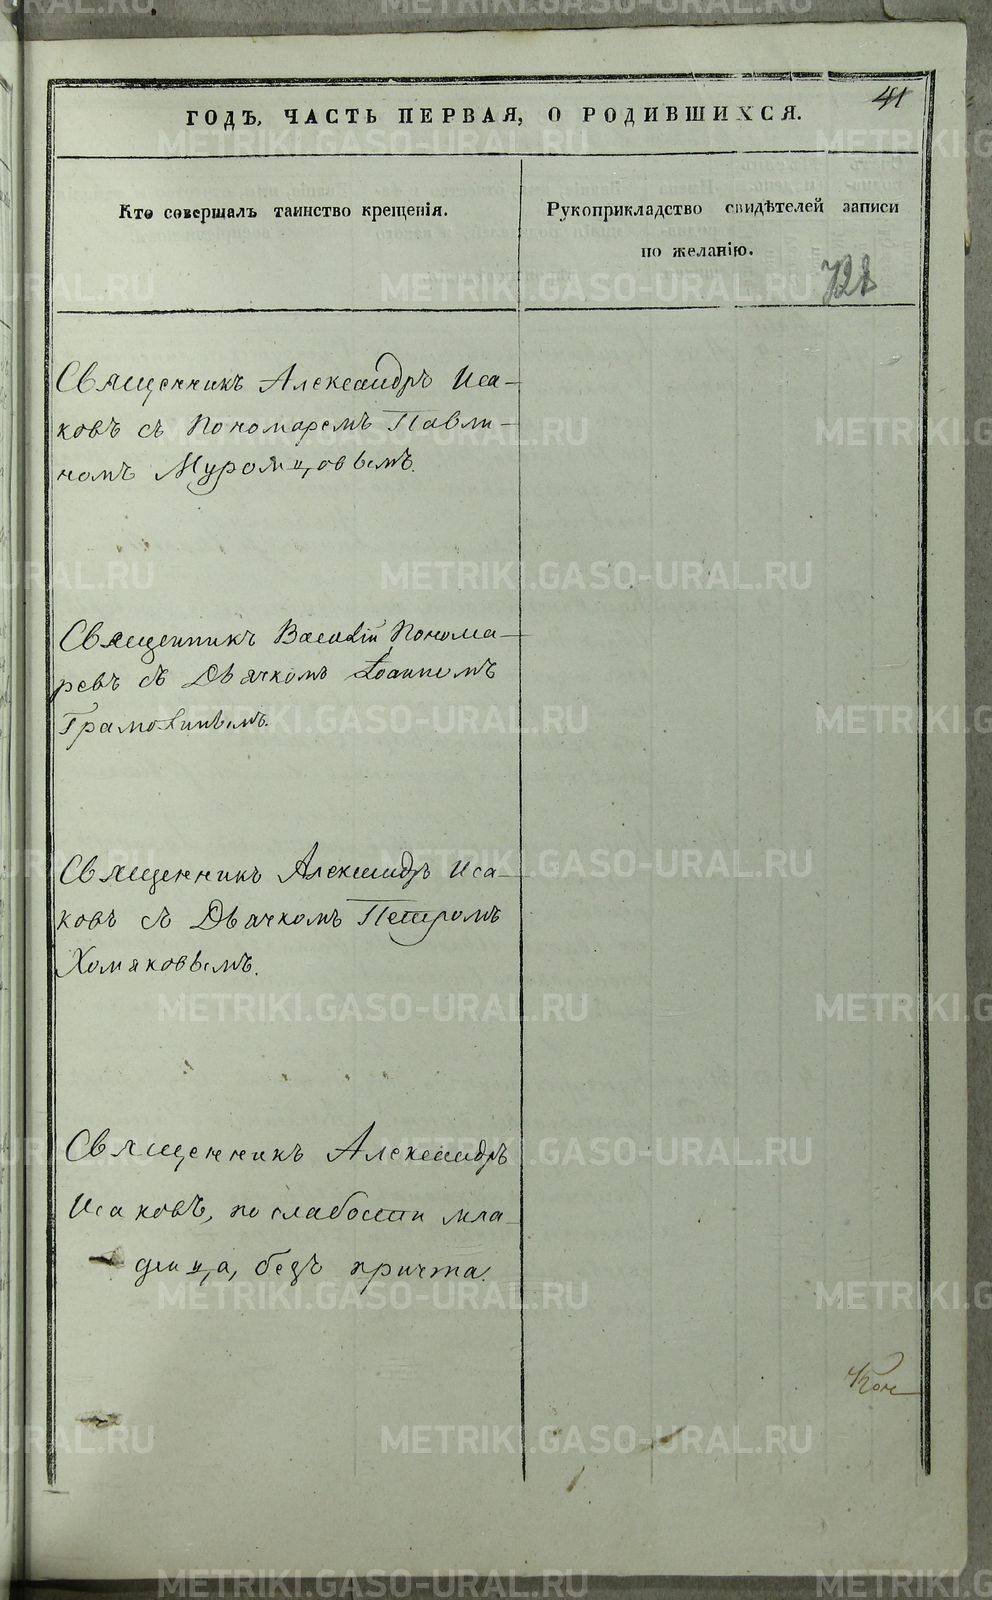 41
ГОДЪ, ЧАСТЬ ПЕРВАЯ, О РОДИВШИХСЯ.
Кто совершалъ таинство крещенія.
Рукоприкладство свидѣтелей записи
по желанію.
728
Священникъ Александръ Иса-
ковъ съ Пономаремъ Павли-
номъ Муромцовымъ.
Священникъ Василій Понома-
ревъ съ Дьячкомъ Іоанномъ
Грамолинымъ.
Священникъ Александръ Иса-
ковъ съ Дьячкомъ Петромъ
Хомяковымъ.
Священникъ Александръ
Исаковъ, по слабости мла-
денца, безъ причта.
METRIKI.GASO-URAL.RU